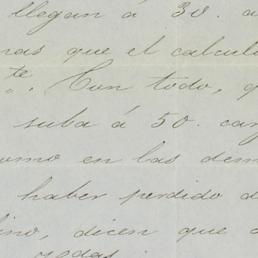 llegan á 30. a
mas que el calcul
te. Con todo, q
suba á 50. car
como en las dem
haber perdido d
lino, dicen que
todas.